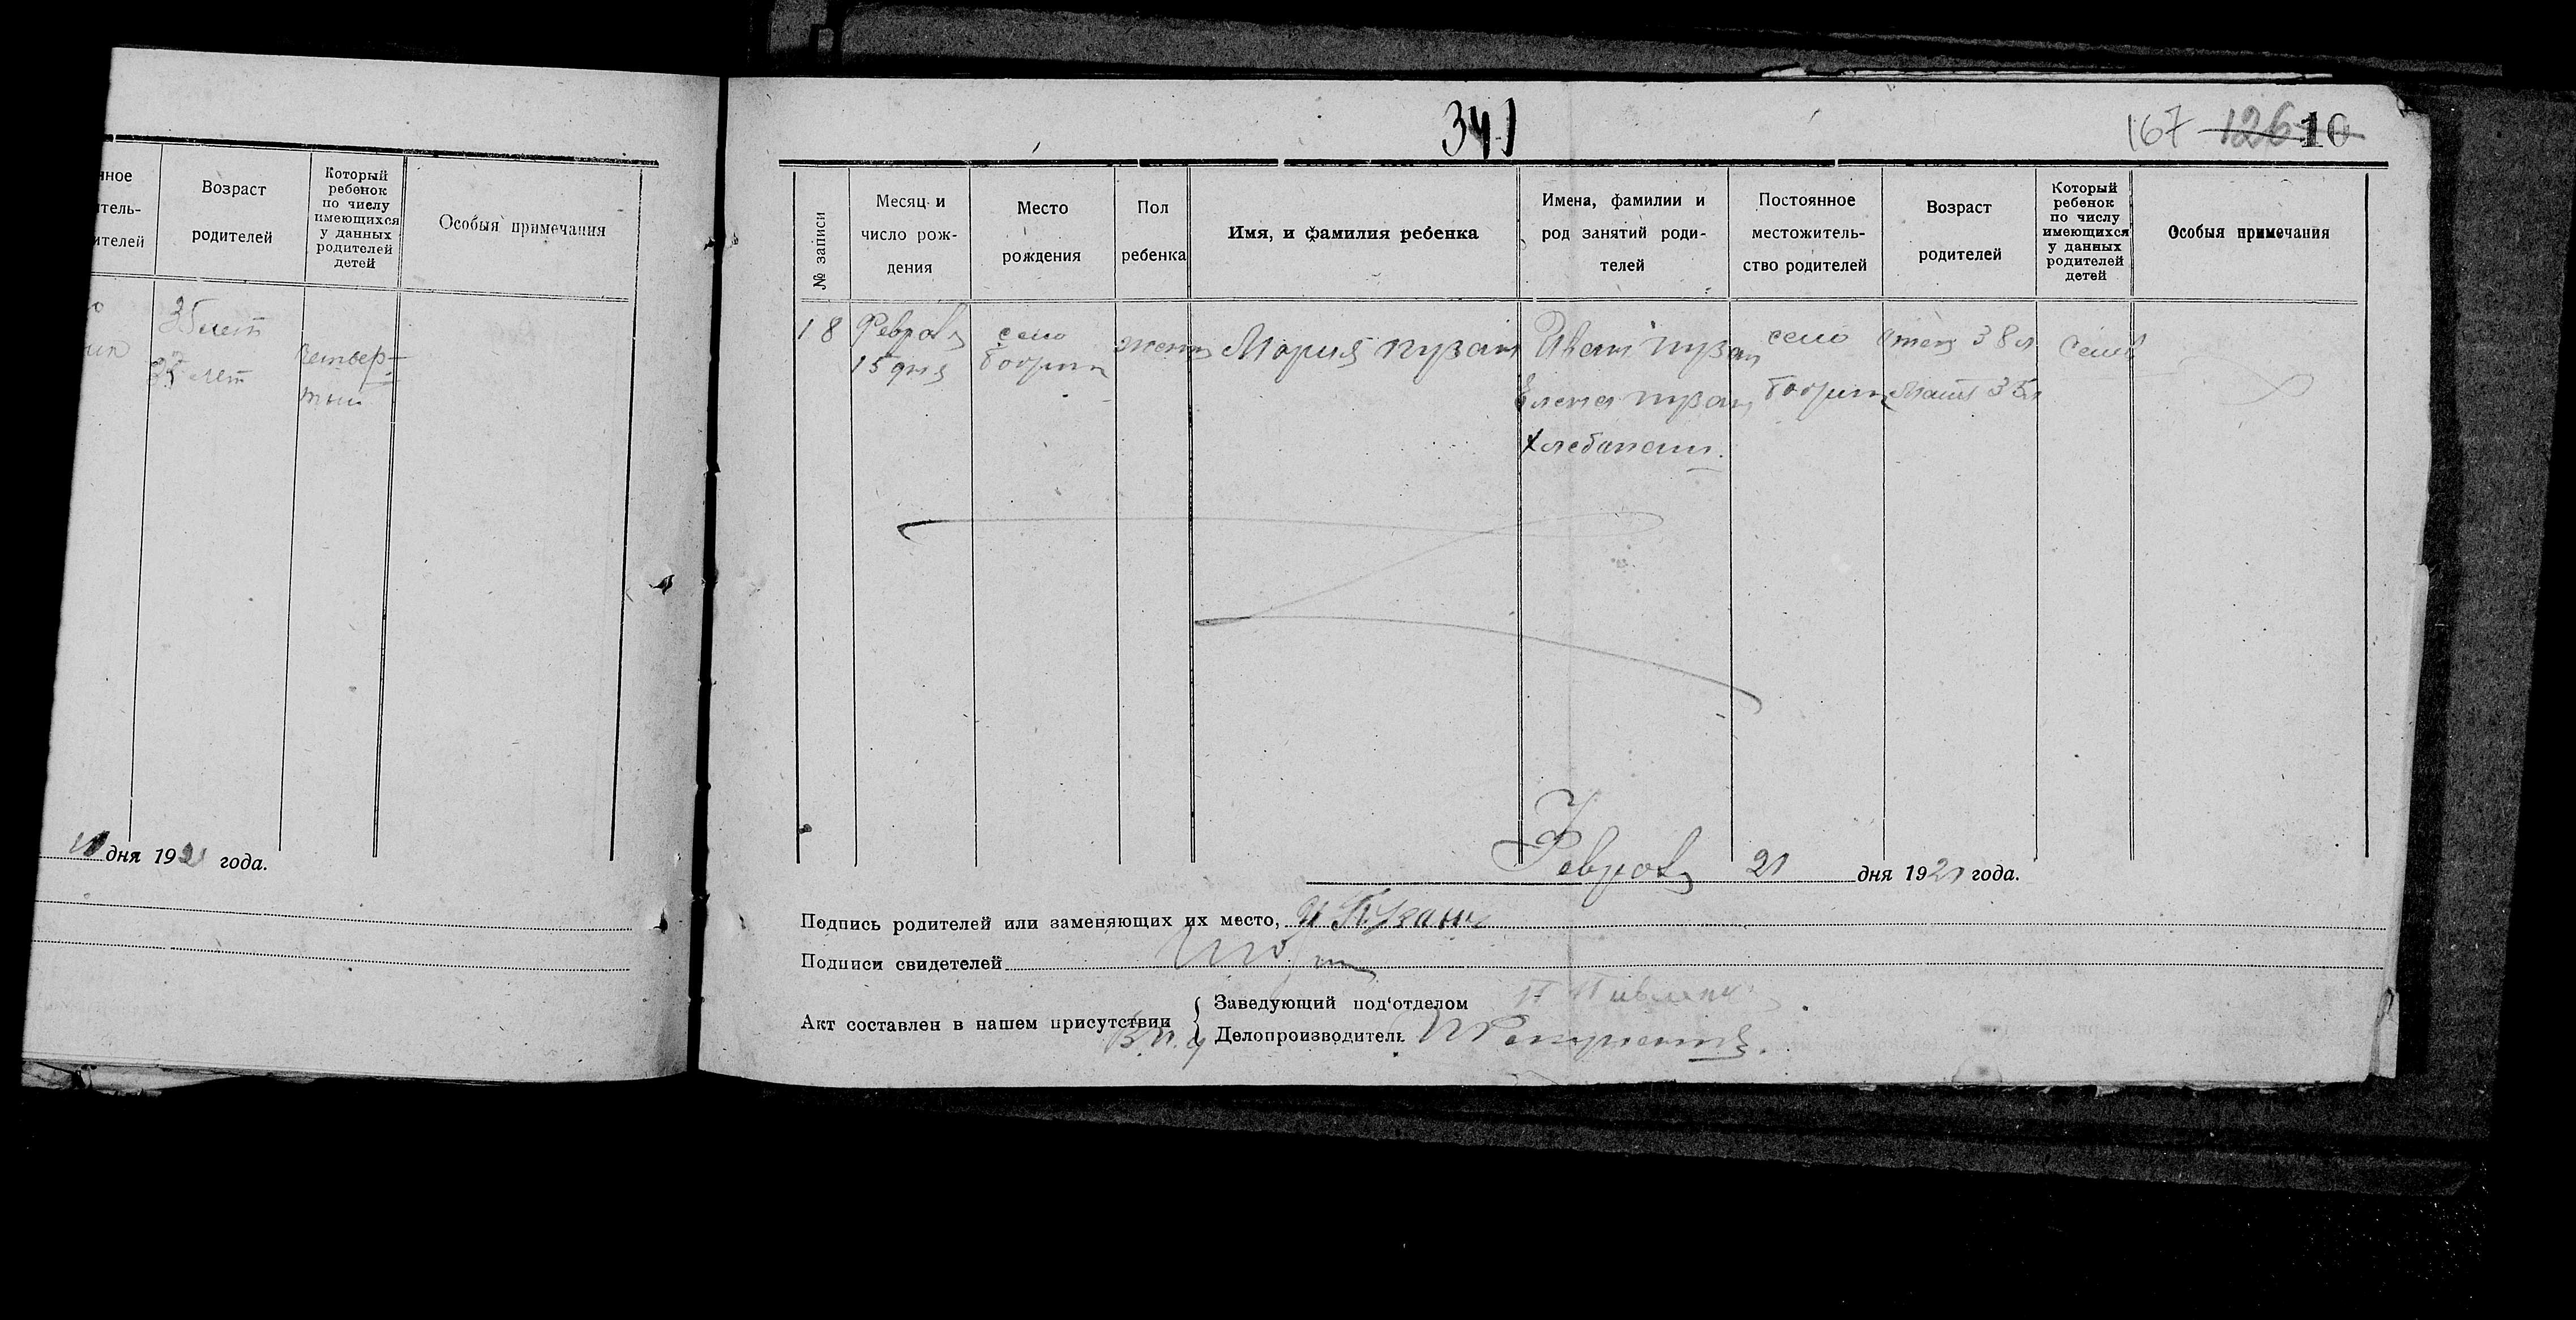 нное
тель-
ителей
Возраст
родителей
Который
ребенок
по числу
имеющихся
у данных
родителей
детей
Особыя примечания
35 лет
37 лет
четвер-
тый
дня 1921 года.
341
167 126 10
№ записи
Месяц и
число рож-
дения
Место
рождения
Пол
ребенка
Имя, и фамилия ребенка
Имена, фамилии и
род занятий роди-
телей
Постоянное
местожитель-
ство родителей
Возраст
родителей
Который
ребенок
по числу
имеющихся
у данных
родителей
детей
Особыя примечания
18
Февраля
15 дня
село
женс
Мария Пузан
Иван Пузан
Елена Пузан
Хлебапаш.
село
Отец 38 л
Мать 35 л
Февраля 21 дня 1921 года.
Подпись родителей или заменяющих их место, И Пузан
Подписи свидетелей
Акт составлен в нашем присутствии
Заведующий под'отделом
Делопроизводитель